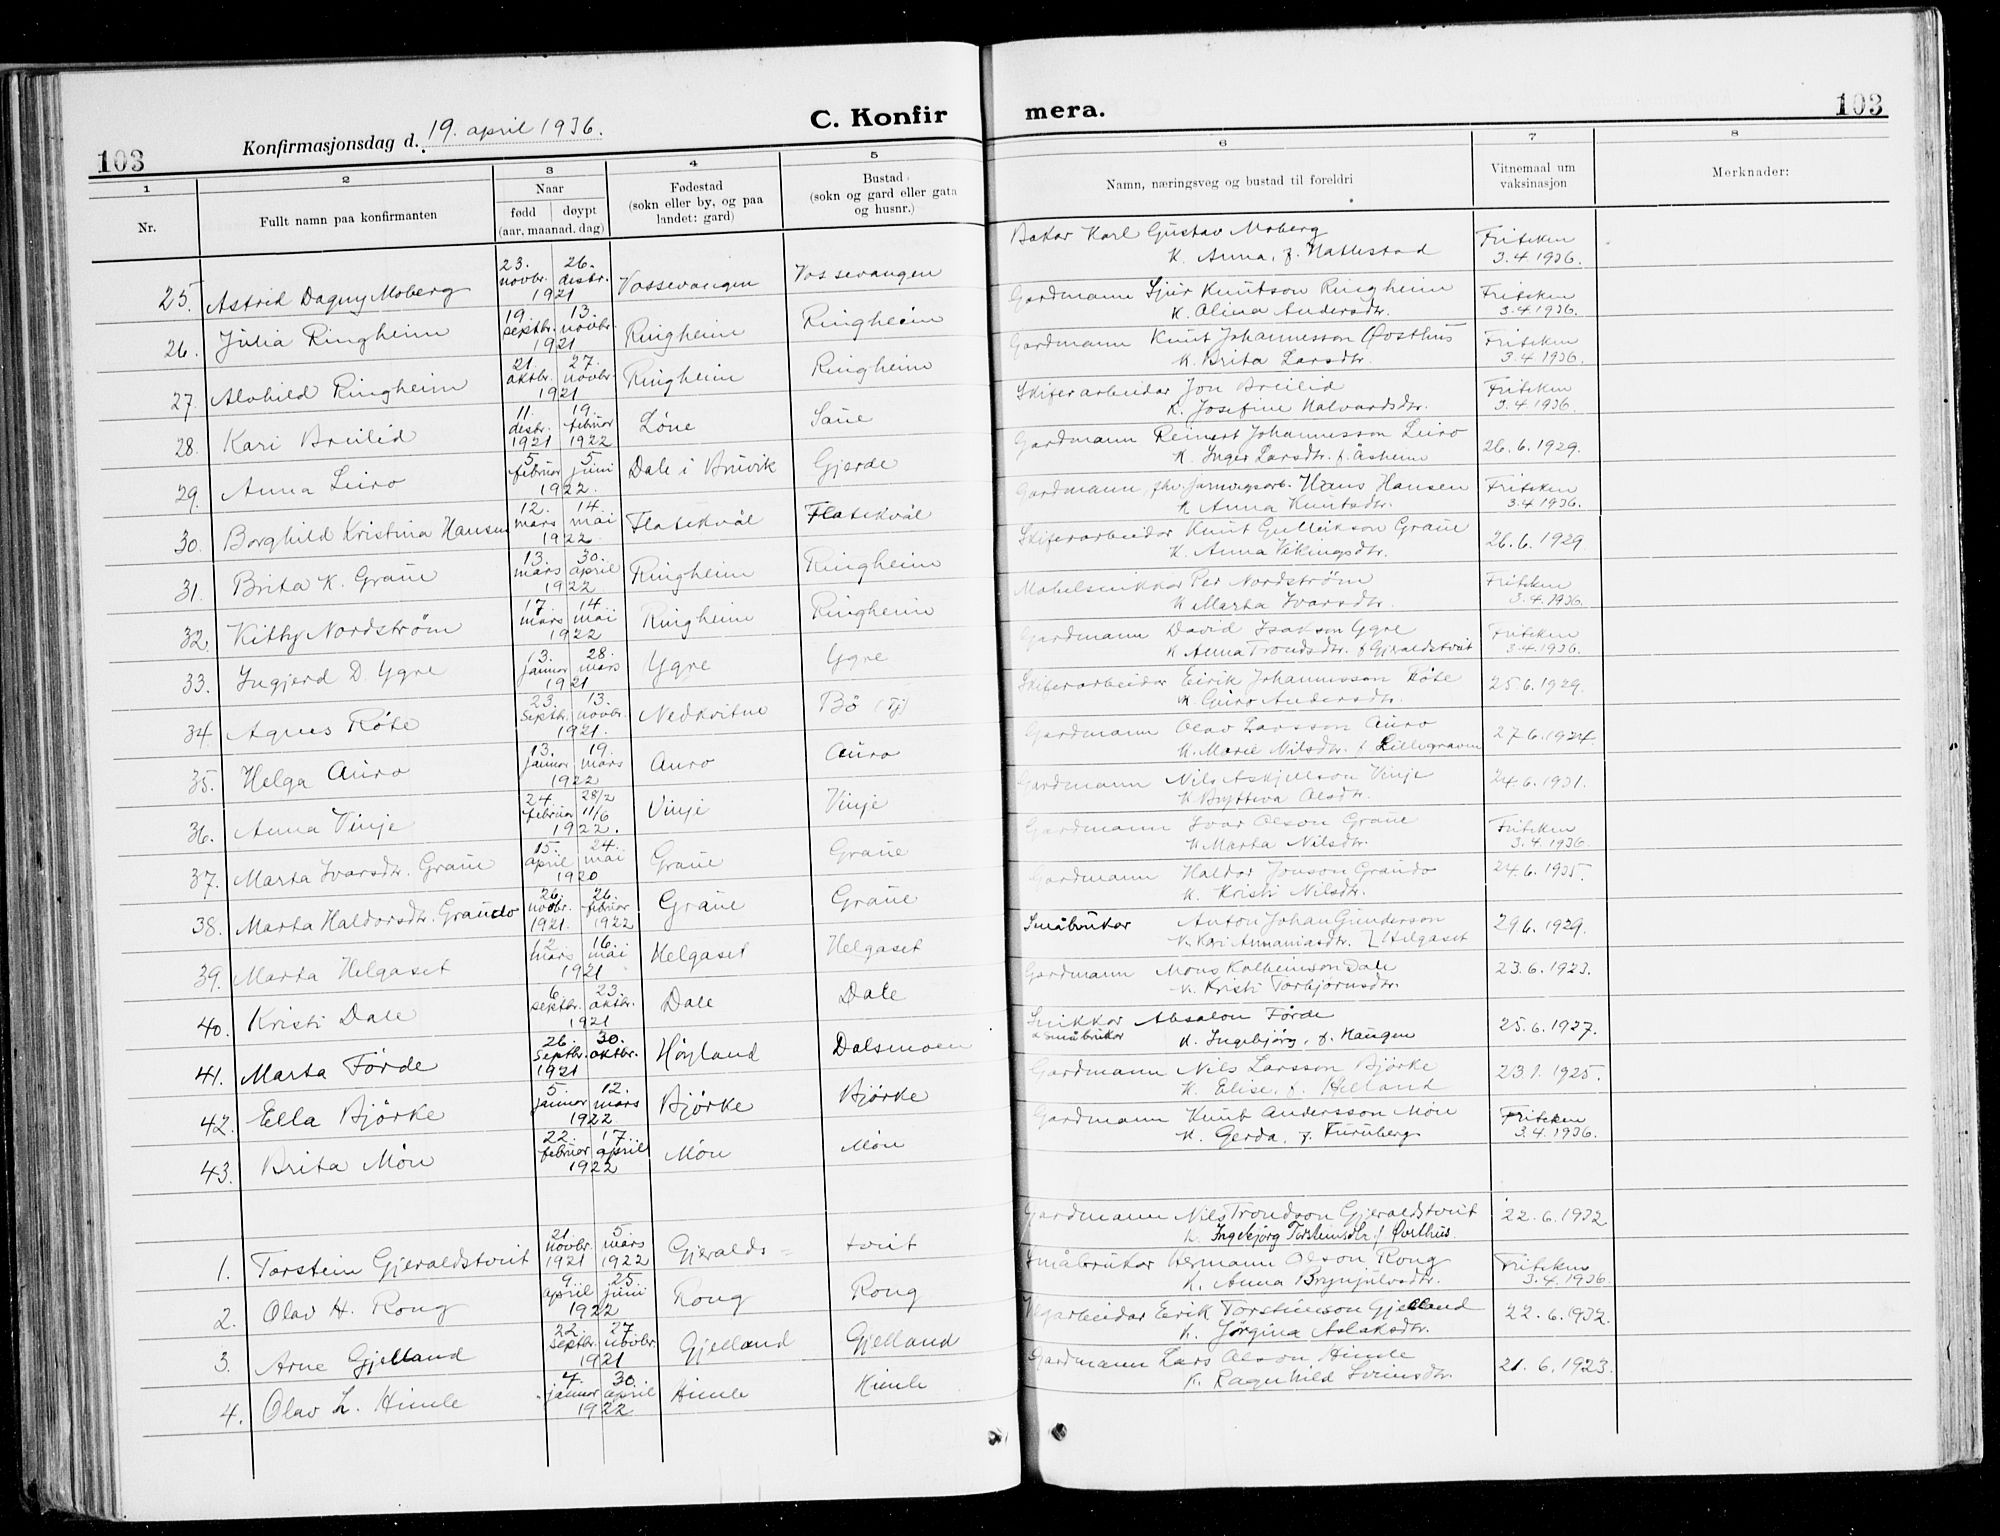 103
Konfirmasjonsdag d. 19. april 1936.
C. Konfirmera.
103
1 2 3 4 5 6 7 8
Nr.
Fullt namn paa konfirmanten
Naar
født | døypt
(aar, maanad, dag)
Fødestad
(sokn eller by, og paa
landet: gard)
Bustad
(sokn og gard eller gata
og husnr.)
Namn, næringsveg og bustad til foreldri
Vitnemaal um
vaksinasjon
Merknader:
25. Astrid Dagny Moberg 23. novbr. 26. desbr. 1921 Vossevangen Vossevangen Bakar Karl Gustav Moberg K. Anna, f. Nattestad Friteken 3.4.1936.
26. Julia Ringheim 19. septbr. 13. novbr. 1921 Ringheim Ringheim Gardmann Sjur Knutson Ringheim K. Olina Andersdtr. Friteken 3.4.1936.
27. Alvhild Ringheim 21. oktbr. 27. novbr. 1921 Ringheim Ringheim Gardmann Knut Johannesson Øvsthus K. Brita Larsdtr. Friteken 3.4.1936.
28. Kari Breilid 11. desbr. 1921 19. februar 1922 Løne Saue Skiferarbeidar Jon Breilid K. Josefine Halvardsdtr. Friteken 3.4.1936.
29. Anna Leiro 5. februar 5. juni 1922. Dale i Bruvik Gjerde Gardmann Reinert Johannesson Leiro K. Inger Larsdtr. f. Åsheim 26.6.1929.
30. Borghild Kristina Hansen 12. mars 14. mai 1922 Flatekvål Flatekvål Gardmann, fhv. jarnvegsarb. Hans Hansen K. Anna Knutsdtr. Friteken 3.4.1936.
31. Brita K. Graue 13. mars 30. april 1922 Ringheim Ringheim Skiferarbeidar Knut Gulleikson Graue K. Anna Vikingsdtr. 26.6.1929
32. Kitty Nordstrøm 17. mars 14. mai 1922 Ringheim Ringheim Møbelsnikkar Per Nordstrøm K. Marta Ivarsdtr. Friteken 3.4.1936.
33. Ingjerd D. Ygre 13. januar 28. mars 1921 Ygre Ygre Gardmann David Isakson Ygre K. Anna Trondsdtr. f. Gjeraldstveit Friteken 3.4.1936.
34. Agnes Røte 23. septbr. 13. novbr. 1921. Nedkvitne Bö Skiferarbeidar Eirik Johannesson Røte K. Guro Andersdtr. 25.6.1929.
35. Helga Auro 13. januar 19. mars 1922 Auro Auro Gardmann Olav Larsson Auro K. Marie Nilsdtr. f. Lillegraven 27.6.1924.
36. Anna Vinje 24. februar 28/2 11/6 1922. Vinje Vinje Gardmann Nils Askjellson Vinje K. Bryteva Olsdtr. 24.6.1931.
37. Marta Ivarsdtr. Graue 15. april 24. mai 1920 Graue Graue Gardmann Ivar Olson Graue K. Marta Nilsdtr. Friteken 3.4.1936.
38. Marta Haldorsdtr. Graudo 26. novbr. 1921. 26. februar 1922 Graue Graue Gardmann Haldor Jonson Graudo K. Kristi Nilsdtr. 24.6.1935.
39. Marta Helgaset 2. mars 16. mai 1921 Helgaset Helgaset Småbrukar Anton Johan Gunderson K. Kari Annaniasdtr. Helgaset 29.6.1929.
40. Kristi Dale 6. septbr. 23. oktbr. 1921 Dale Dale Gardmann Mons Kolbeinson Dale K. Kristi Torbjørnsdtr. 23.6.1923.
41. Marta Førde 26. septbr. 30. oktbr. 1921 Høyland Dalsmoen Snikkar & småbrukar Absalon Førde K. Ingebjørg, f. Haugen 25.6.1927.
42. Ella Bjørke 5. januar 12. mars 1922 Bjørke Bjørke Gardmann Nils Larsson Bjørke K. Elise, f. Helland 23.1.1925.
43. Brita Møn 22. februar 17. april 1922 Møn Møn Gardmann Knut Andersson Møn K. Gerda, f. Furuberg Friteken 3.4.1936.
1. Torstein Gjeraldstveit 21. novbr. 1921 5. mars 1922 Gjeralds=tveit Gardmann Nils Trondson Gjeraldstveit K. Ingebjørg Torsteinsdtr. f. Øvsthus. 22.6.1932
2. Olav H. Rong 9. april 25. juni 1922 Rong Rong Småbrukar Hermann Olson Rong K. Anna Brynjulvsdtr. Friteken 3.4.1936.
3. Arne Gjelland 22. septbr. 27. novbr. 1921 Gjelland Gjelland Vegarbeidar Eirik Torsteinson Gjelland K. Jørgina Aslaksdtr. 22.6.1932.
4. Olav L. Himle 4. januar 30. april 1922 Himle Himle Gardmann Lars Olson Himle K. Ragnhild Sveinsdtr. 21.6.1923.